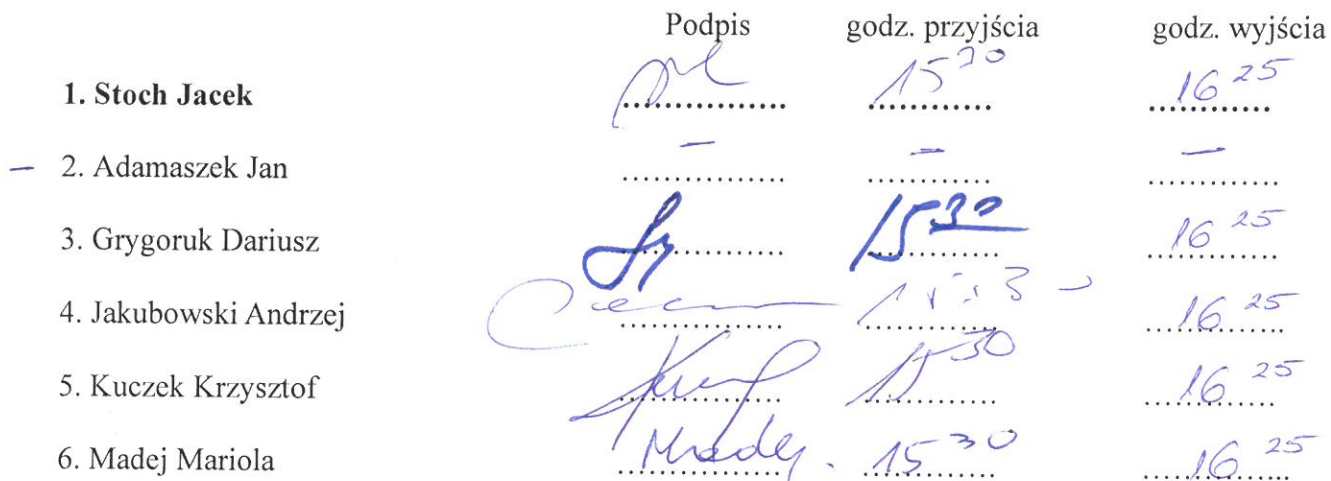 Podpis godz. przyjścia godz. wyjścia
1. Stoch Jacek 15 30 16 25
– 2. Adamaszek Jan – – –
3. Grygoruk Dariusz 15 30 16 25
4. Jakubowski Andrzej 16 25
5. Kuczek Krzysztof 15 30 16 25
6. Madej Mariola Madej. 15 30 16 25